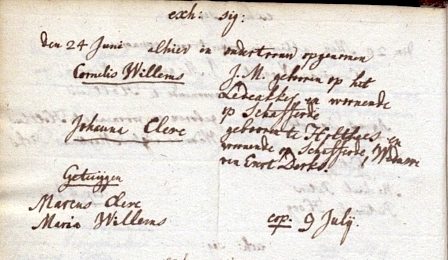 exh: sig:
den 24 Juni alhier in ondertrouw opgenomen
Cornelis Willems J.M. geboren op het
Ledeakker en woonende
op Schafferde
Johanna Clerc geboren te Holthees en
woonende op Schafferde, Weduwe
van Evert Derks.
Getuijgen
Marcus Clerc
Maria Willems cop: 9 Julij.